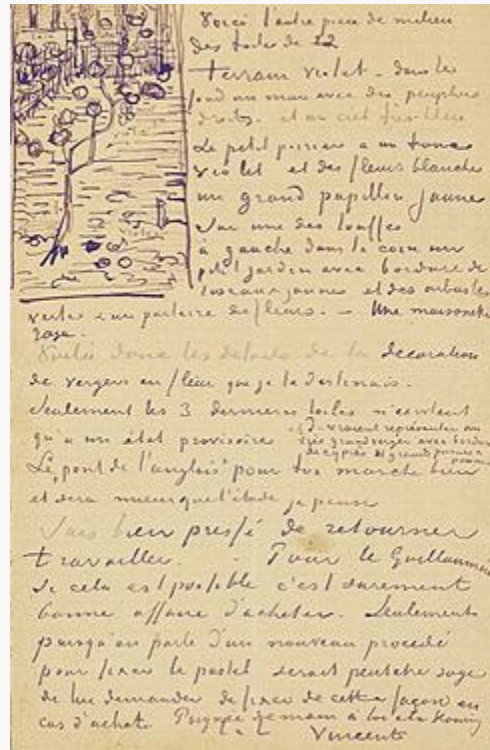 Voici l'autre piece de milieu
des toiles de 12
terrain violet – dans le
fond un mur avec des peupliers
droits et un ciel très bleu
Le petit poirier a un tronc
violet et des fleurs blanches
un grand papillon jaune
sur une des touffes
à gauche dans le coin un
petit jardin avec bordure de
roseaux jaunes et des arbustes
verts et un parterre de fleurs. – Une maisonette
rose.
violet
violet
Voilà donc les details de la decoration
de vergers en fleur que je te destinais.
Seulement les 3 dernieres toiles n'existent
qu'à un état provisoire et devraient représenter un
très grand verger avec bordure
de cyprès et grands poiriers &
pommiers
Le „pont de l'anglois" pour toi marche bien
et sera mieux que l'étude je pense
Suis bien pressé de retourner
travailler. – Pour le Guillaumin
si cela est possible c'est surement
bonne affaire d'acheter. Seulement
puisqu'on parle d'un nouveau procedé
pour fixer le pastel serait peutetre sage
de lui demander de fixer de cette façon en
cas d'achat. Poignée de main à toi et à Koning
Vincent